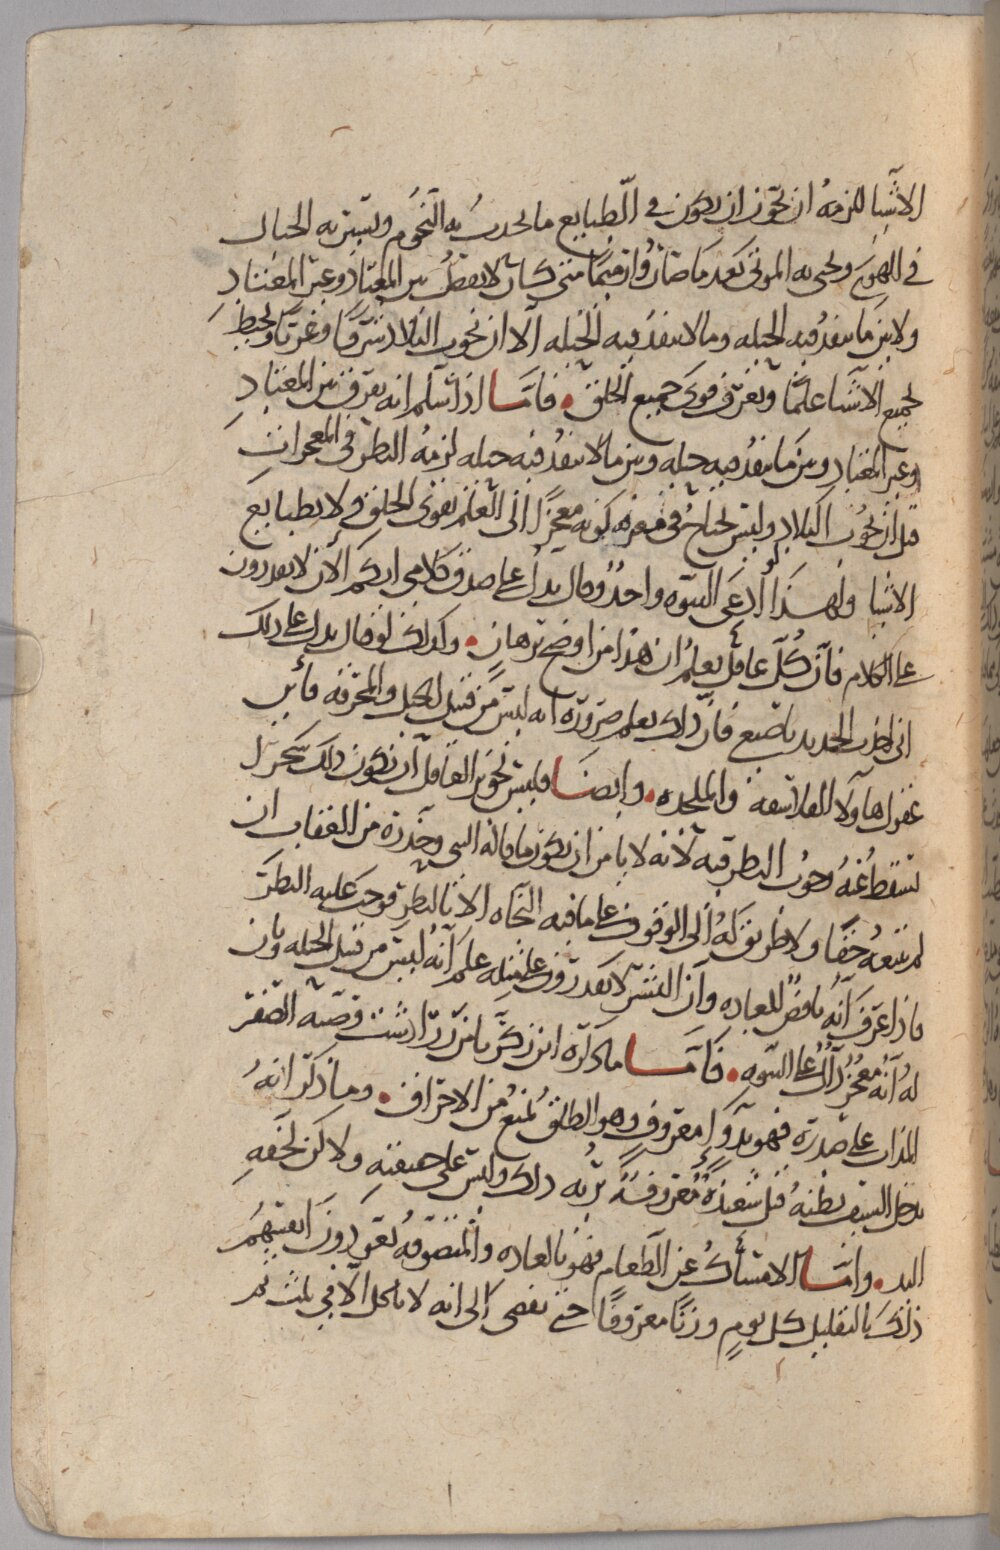 الاشيا للزمهُ ان تجوّز ان يكون في الطبايع ما يحدث به النجوم وتسير به الجبال
في الهوى ويحيى به الموتى بعد ما صاروا رميمًا متى كان لا يفصل بين المعتاد وغير المعتاد
ولا بين ما ينفذ فيه الحيله وما لا ينفذ فيه الحيله الا ان يجوب البلاد شرقًا وغربًا ويحيط
بجميع الاشيا علمًا ويعرف قوى جميع الخلق • فاما اذا سلم انه يعرف بين المعتاد
وغير المعتاد وبين ما ينفذ فيه حيله وبين ما لا ينفذ فيه حيله لزمه النظر في المعجزات
قبل ان يجوب البلاد وليس يحتاج في معرفه كونه معجزًا الى العلم بقوى الخلق ولا بطبايع
الاشيا ولهذا لو ادعى النبوه واحد وقال يدل على صدق كلامي انكم الان لا تقدرون
على الكلام فان كل عاقل يعلم ان هذا من اوضح برهان • وكذلك لو قال يدل على ذلك
اني اجذب الحديد باصبع فان ذلك يعلم ضروره انه ليس من قبيل الحيل والمخرقه فاين
عقول هاولا الفلاسفه والملحده • وايضا فليس تجويز العاقل ان يكون ذلك سحر لا
يسقط عنه وجوب النظر فيه لانه لا يامن ان يكون ما قاله النبي وحذره من العقاب ان
لم يتبعه حقًا ولا طريق له الى الوقوف على ما فيه النجاه الا بالنظر فوجب عليه النظر
فاذا عرف انه ناقض للعاده وان البشر لا يقدرون على مثله علم انه ليس من قبيل الحيله وبان
له انه معجز دال على النبوه • فاما ما ذكره ابن زكريا من زرادشت وقصته الصفر
المذاب على صدره فهو بدواء معروف وهو الطلق يمنع من الاحتراق • وما ذكر انه
يدخل السيف بطنه فتل شعبذه معروفه يريه ذلك وليس على حقيقته ولا كن لخفه
اليد • واما الامساك عن الطعام فهو بالعاده والمتصوفه يعودون انفسهم
ذلك بالتقليل كل يوم وزنًا معروفًا حتى يفضى الى انه لا ياكل الا في ثلث ثم